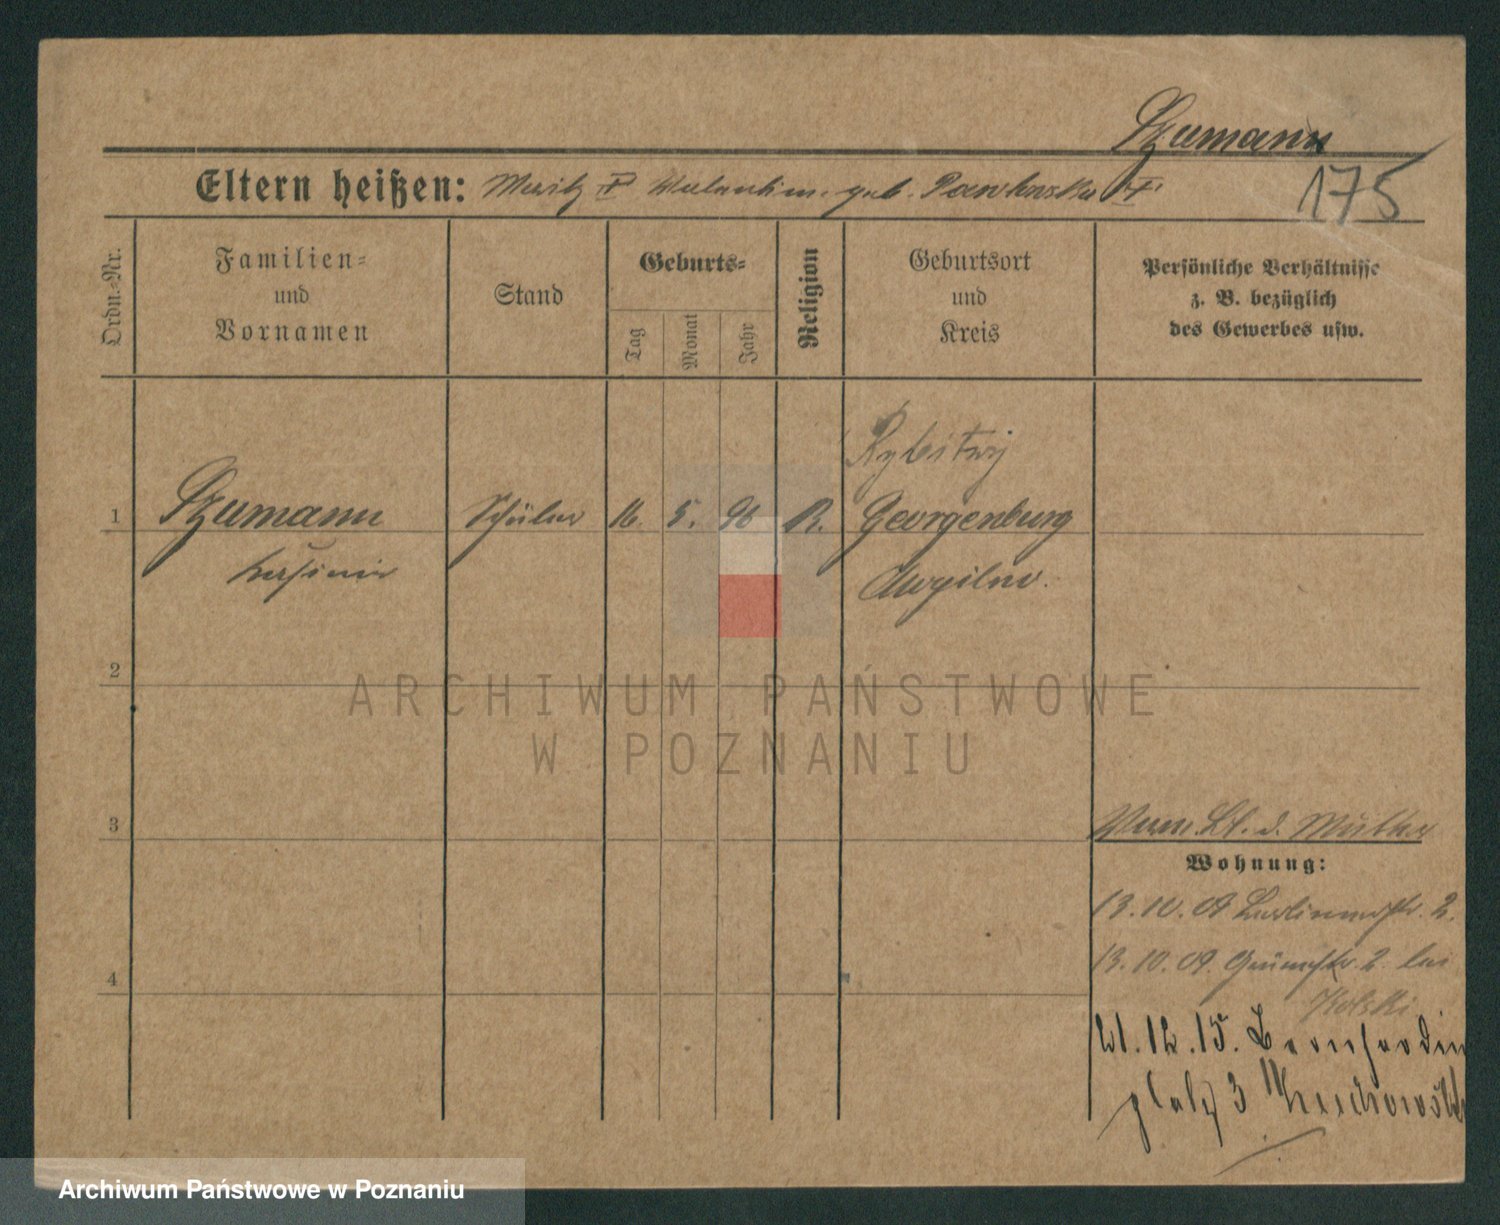 Szumann
Eltern heißen: Moritz † Valentine geb. Pawlowska †
175
Ordn.-Nr.
Familien-
und
Vornamen
Stand
Geburts-
Tag
Monat
Jahr
Religion
Geburtsort
und
Kreis
Persönliche Verhältnisse
z. B. bezüglich
des Gewerbes usw.
Rybitwy
1 Szumann Schüler 16. 5. 96 R. Georgenburg
Kasimir
2
3
4
Wohnung:
13.10.09 Berlinerstr. 2.
13.10.09. Grünestr. 2 bei
Kolski
21.12.15. Bernhardin
platz 3
ARCHIWUM PAŃSTWOWE
W POZNANIU
Archiwum Państwowe w Poznaniu